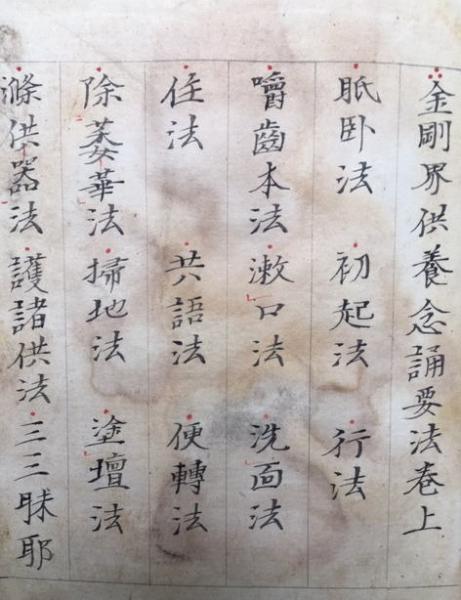 金剛界供養念誦要法卷上
眠卧法 初起法 行法
嚼齒本法 漱口法 洗面法
住法 共語法 便轉法
除萎華法 掃地法 塗壇法
滌供器法 護諸供法 三三昧耶